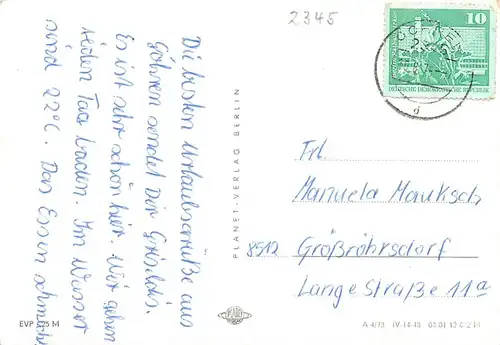 2345
10
DEUTSCHE DEMOKRATISCHE REPUBLIK
Die besten Urlaubsgrüße aus
Göhren sendet Dir Griseldis.
Es ist sehr schön hier. Wir gehen
jeden Tag baden. Im Wasser
sind 22°C. Das Essen schmeckt
PLANET-VERLAG BERLIN
Frl.
Manuela Mauksch
8512 Großröhrsdorf
Lange Straße 11a
PLANET
EVP M
A 4/78 IV-14-48